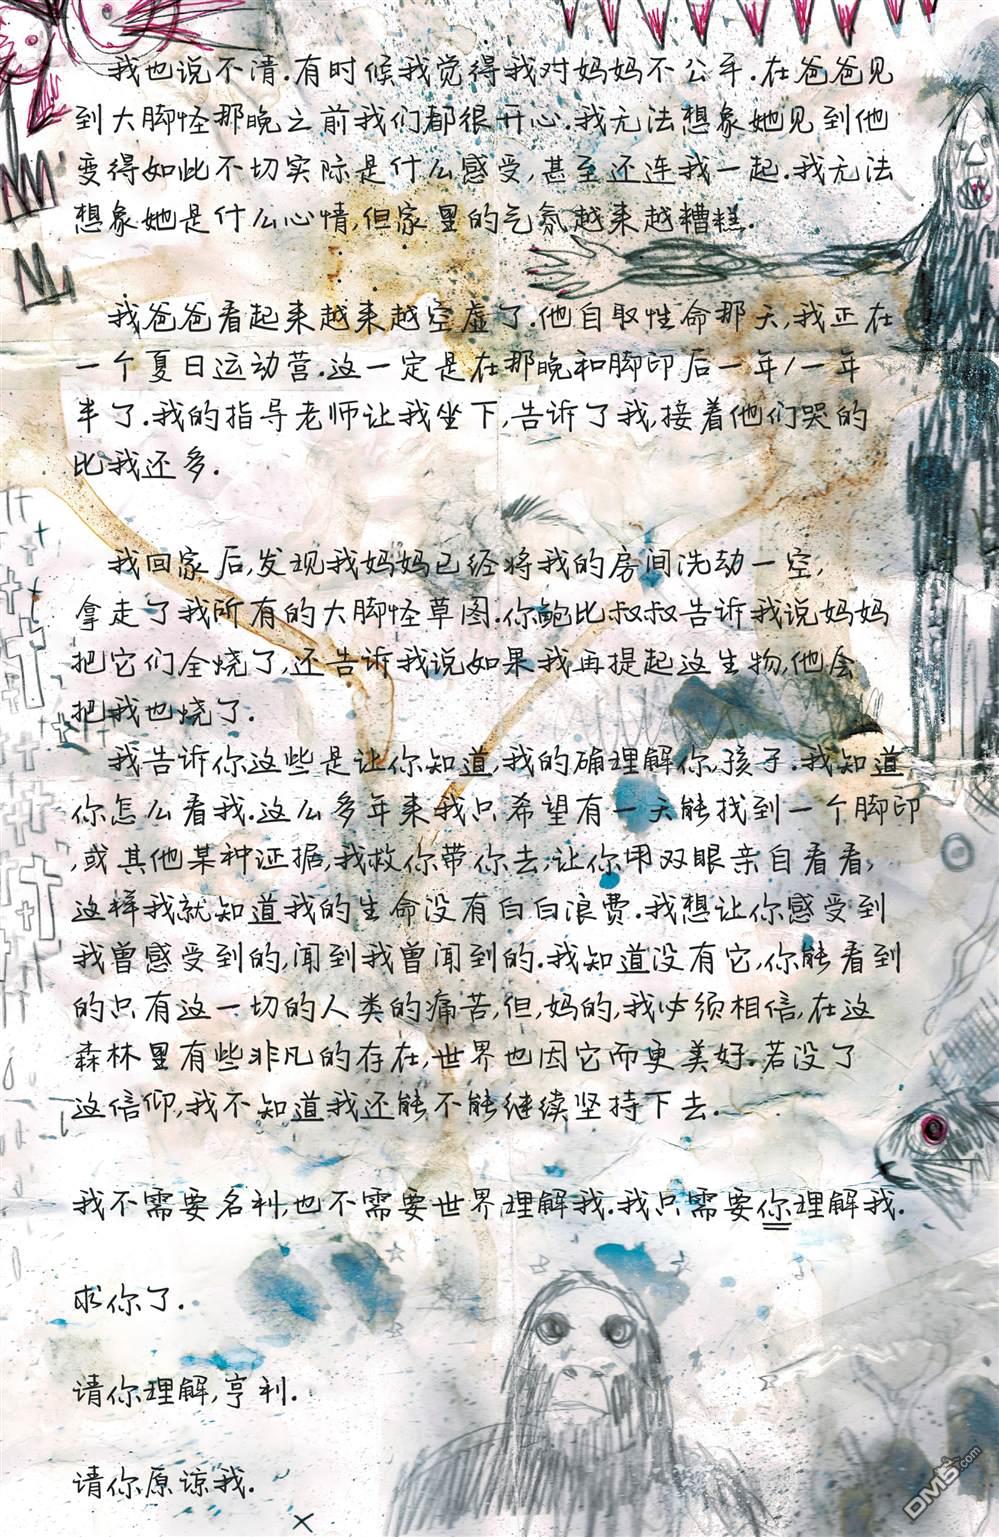 我也说不清.有时候我觉得我对妈妈不公平.在爸爸见
到大脚怪那晚之前我们都很开心.我无法想象她见到他
变得如此不切实际是什么感受,甚至还连我一起.我无法
想象她是什么心情,但家里的气氛越来越糟糕.
我爸爸看起来越来越空虚了.他自取性命那天,我正在
一个夏日运动营.这一定是在那晚和脚印后一年/一年
半了.我的指导老师让我坐下,告诉了我,接着他们哭的
比我还多.
我回家后,发现我妈妈已经将我的房间洗劫一空,
拿走了我所有的大脚怪草图.你鲍比叔叔告诉我说妈妈
把它们全烧了,还告诉我说如果我再提起这生物,他会
把我也烧了.
我告诉你这些是让你知道,我的确理解你,孩子.我知道
你怎么看我.这么多年来我只希望有一天能找到一个脚印
,或其他某种证据,我救你带你去,让你用双眼亲自看看,
这样我就知道我的生命没有白白浪费.我想让你感受到
我曾感受到的,闻到我曾闻到的.我知道没有它,你能看到
的只有这一切的人类的痛苦,但,妈的,我必须相信,在这
森林里有些非凡的存在,世界也因它而更美好.若没了
这信仰,我不知道我还能不能继续坚持下去.
我不需要名利,也不需要世界理解我.我只需要你理解我.
求你了.
请你理解,亨利.
请你原谅我.
X
DM5.com